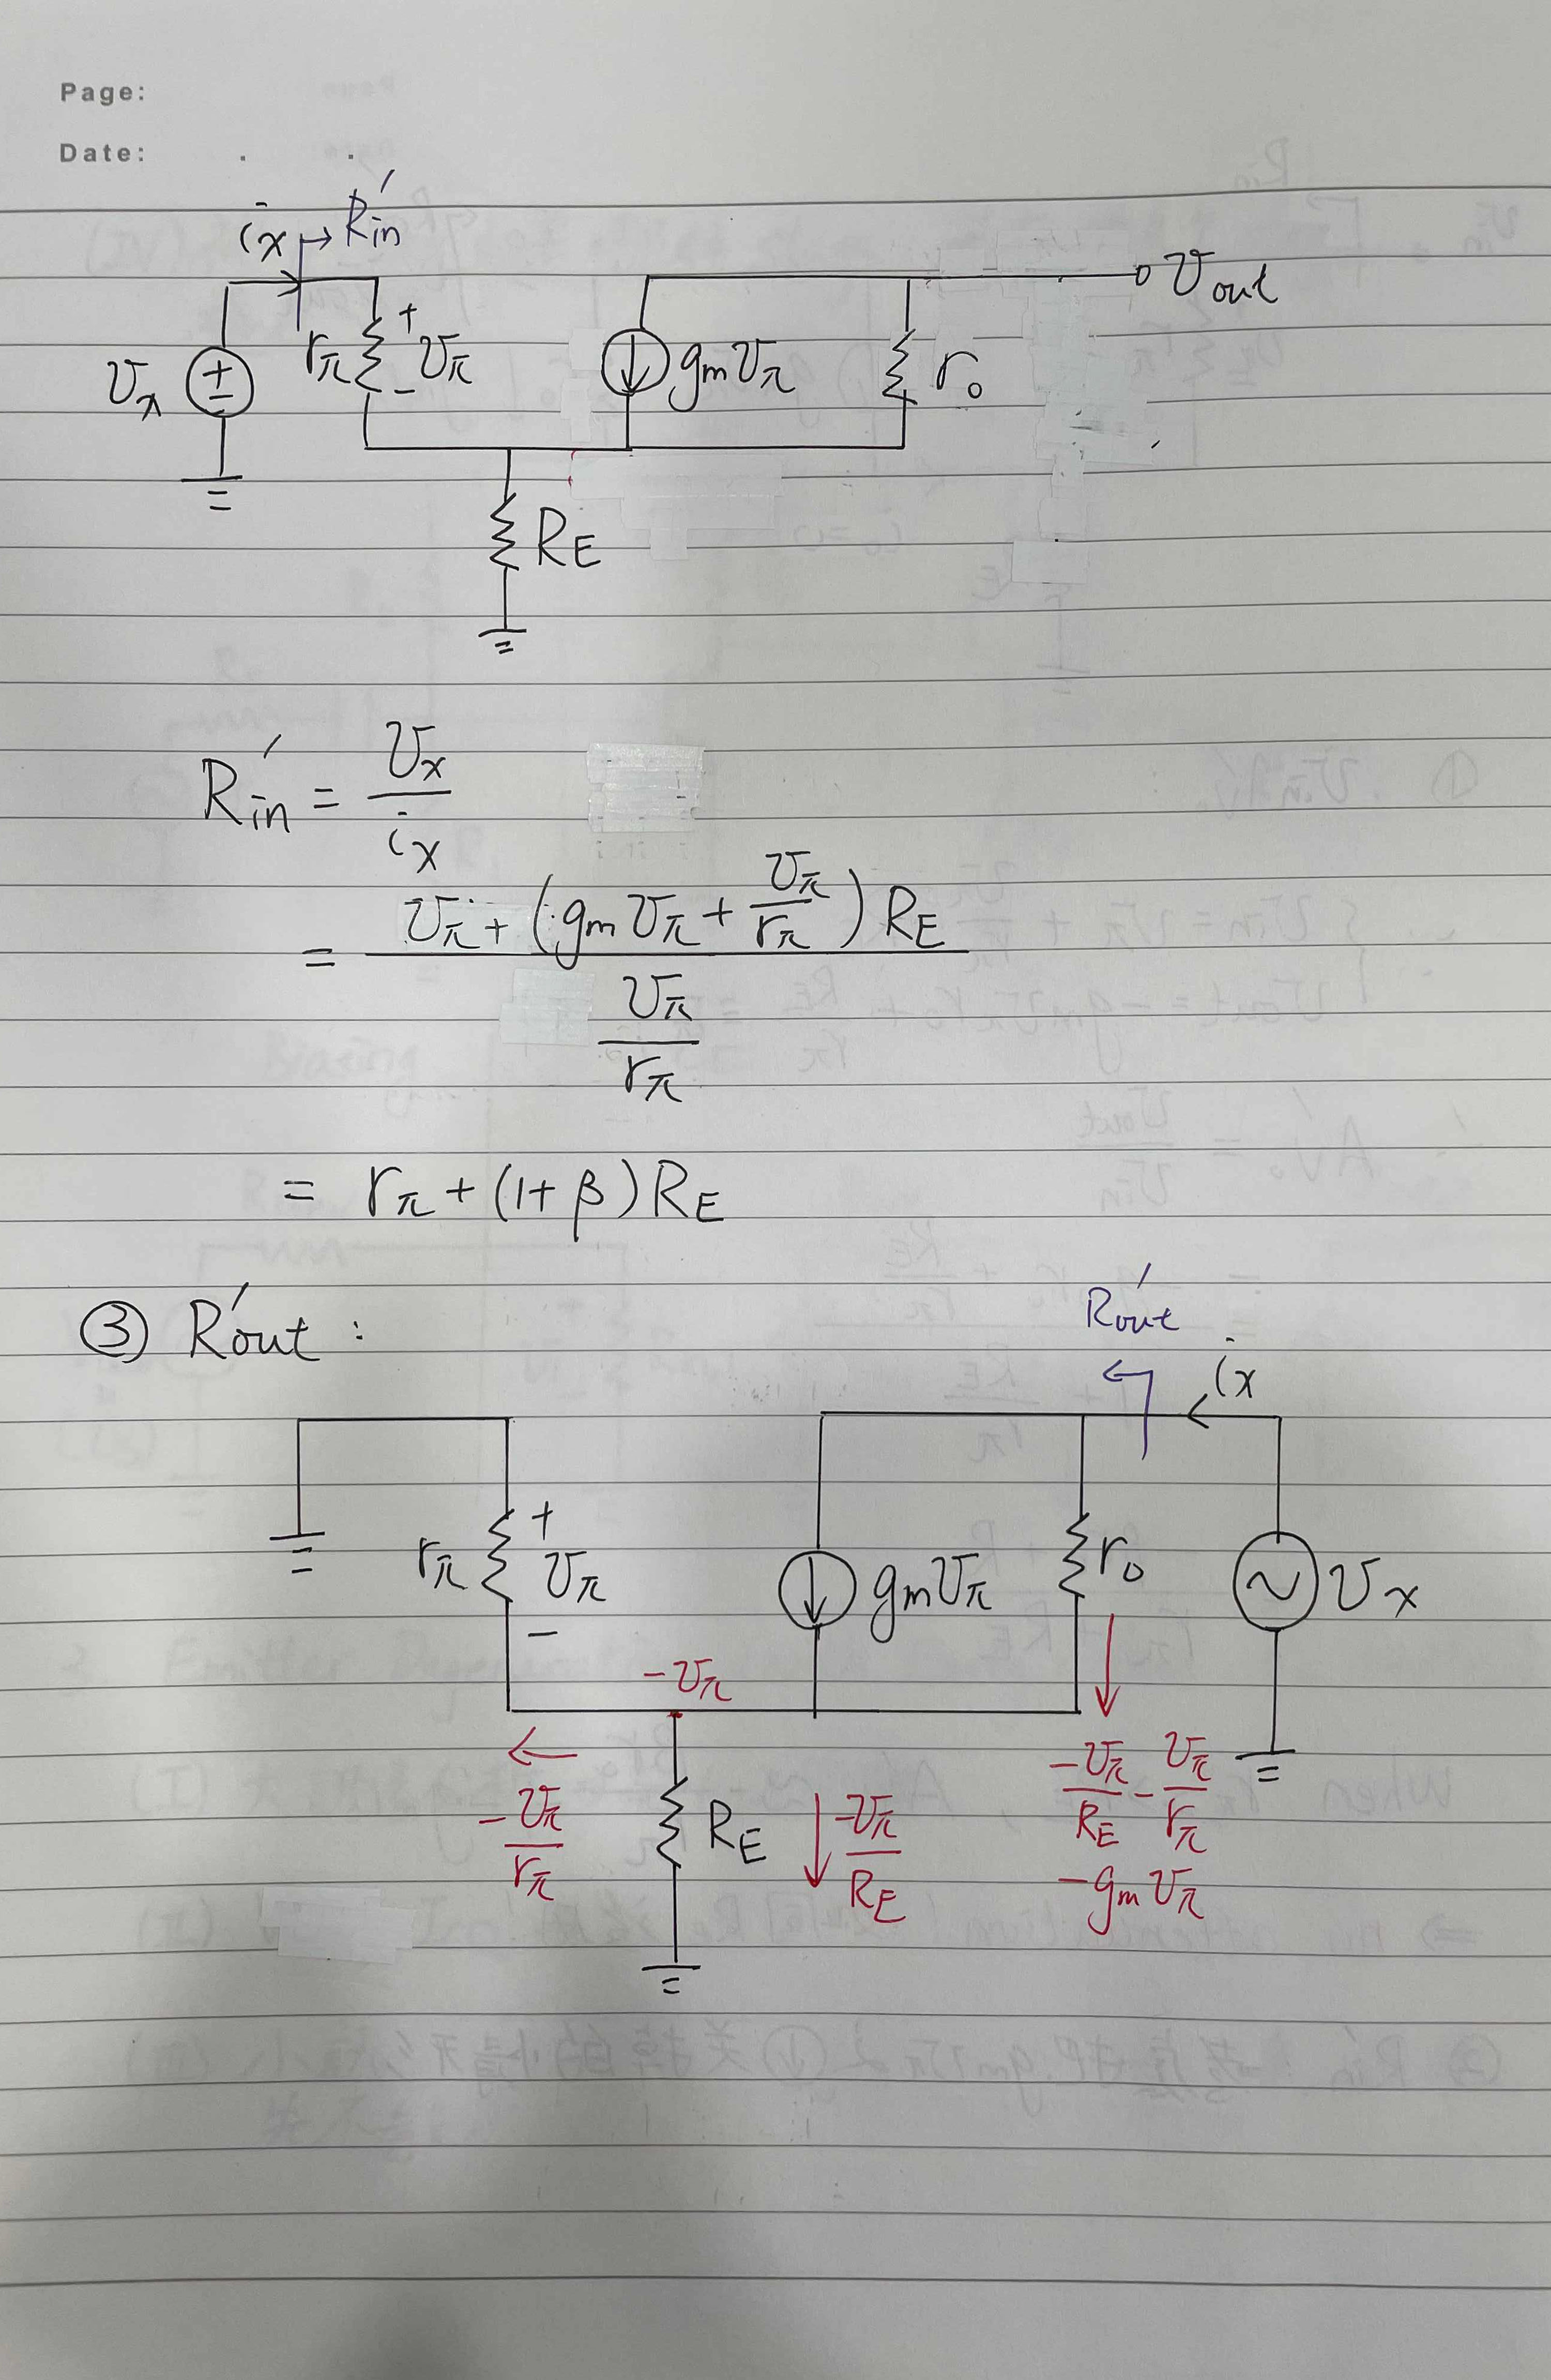 Page:
Date: . .
iₓ ↦ R'in
vₓ + − rπ + vπ − gmvπ ro vout
RE
R'in = vₓ / iₓ
= (vπ + (gmvπ + vπ/rπ) RE) / (vπ/rπ)
= rπ + (1+β)RE
③ R'out :
R'out
iₓ
rπ + vπ − gmvπ ro vₓ
−vπ
← −vπ/rπ RE ↓ −vπ/RE −vπ/RE − vπ/rπ
−gmvπ